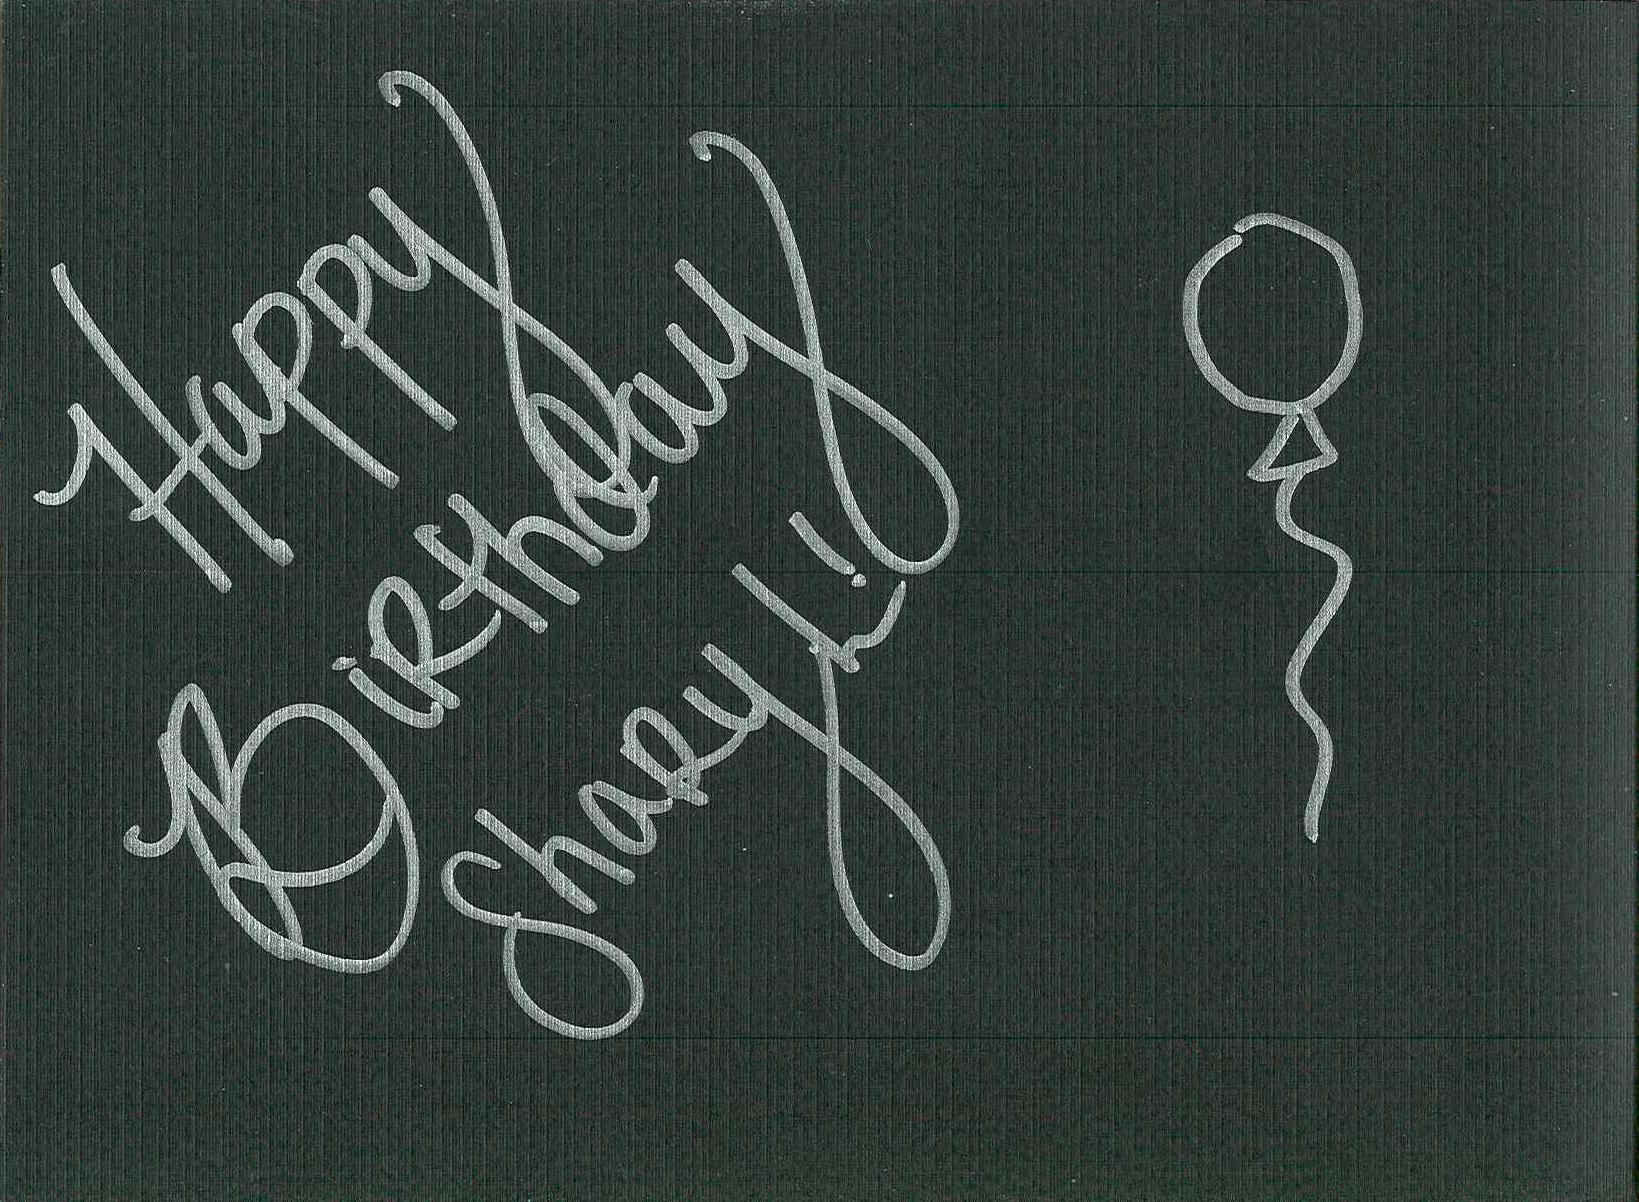 Happy
Birthday
Sharyl!